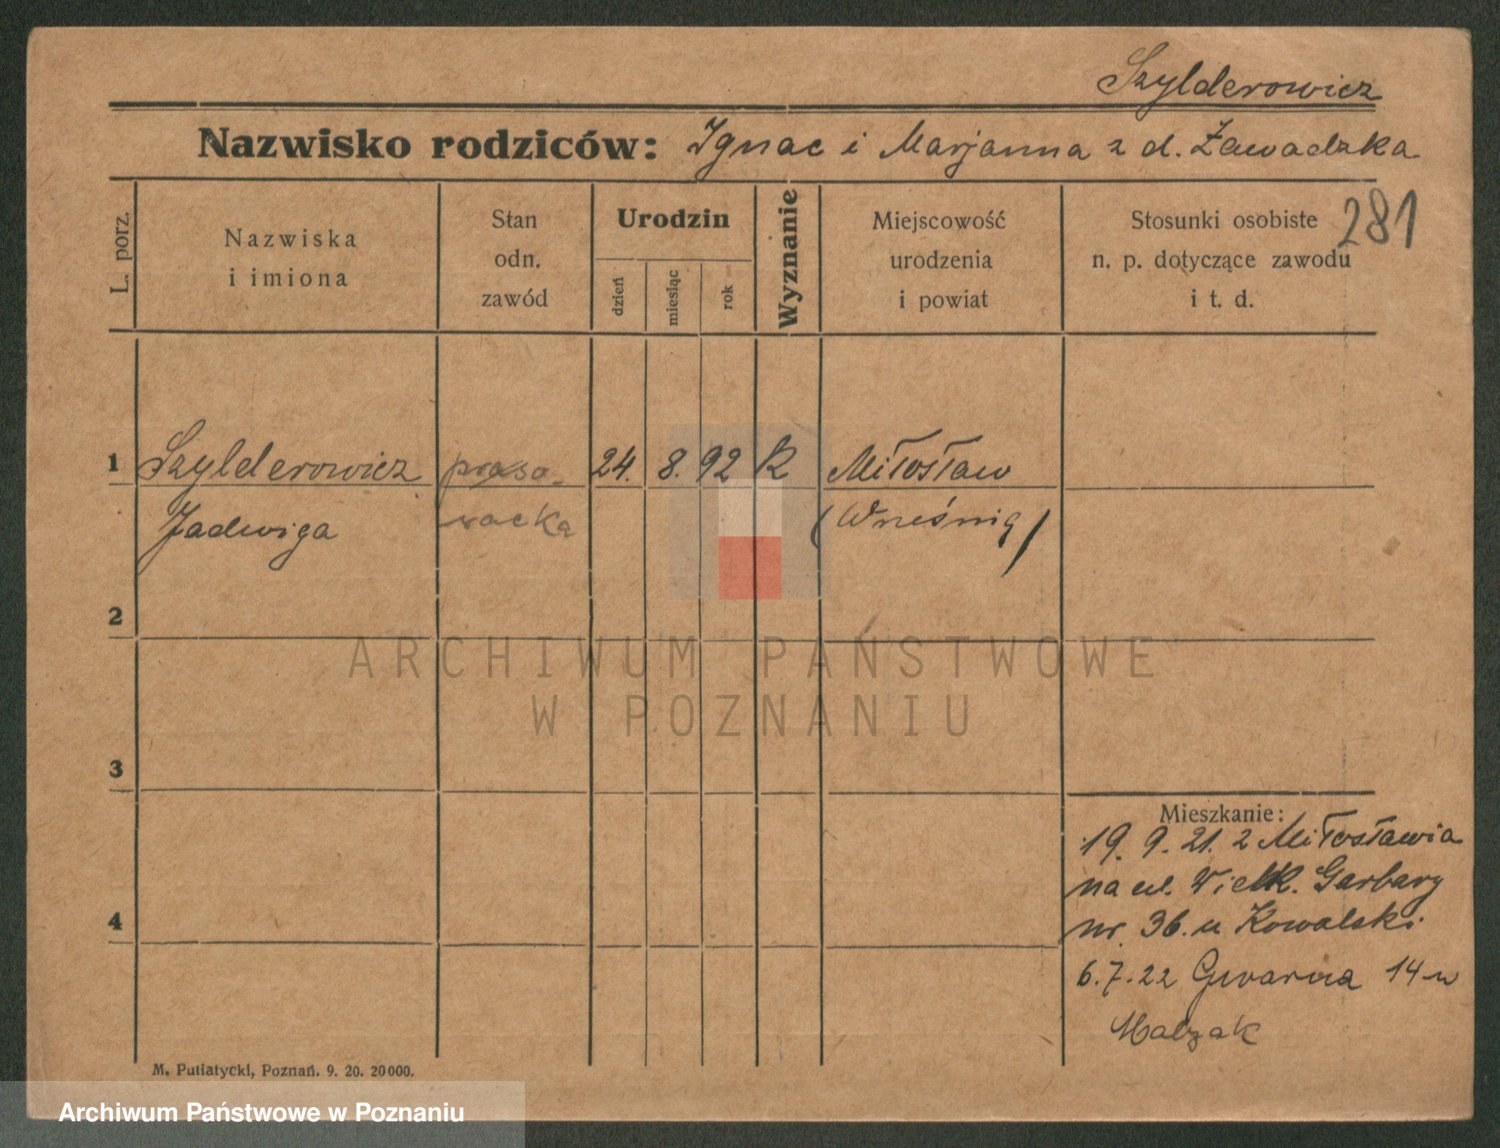 Szylderowicz
Nazwisko rodziców: Ignac i Marjanna z d. Zawadzka
281
L. porz.
Nazwiska
i imiona
Stan
odn.
zawód
Urodzin
dzień
miesiąc
rok
Wyznanie
Miejscowość
urodzenia
i powiat
Stosunki osobiste
n. p. dotyczące zawodu
i t. d.
1 Szylderowicz praso- 24. 8. 92 K Miłosław
Jadwiga waczka (Wrześnią)
2
3
4
Mieszkanie:
19. 9. 21. z Miłosławia
na ul. Wielk. Garbary
nr. 36. u Kowalski.
6.7.22 Gwarna 14 u
Malzak
M. Putiatycki, Poznań. 9. 20. 20000.
ARCHIWUM PAŃSTWOWE
W POZNANIU
Archiwum Państwowe w Poznaniu